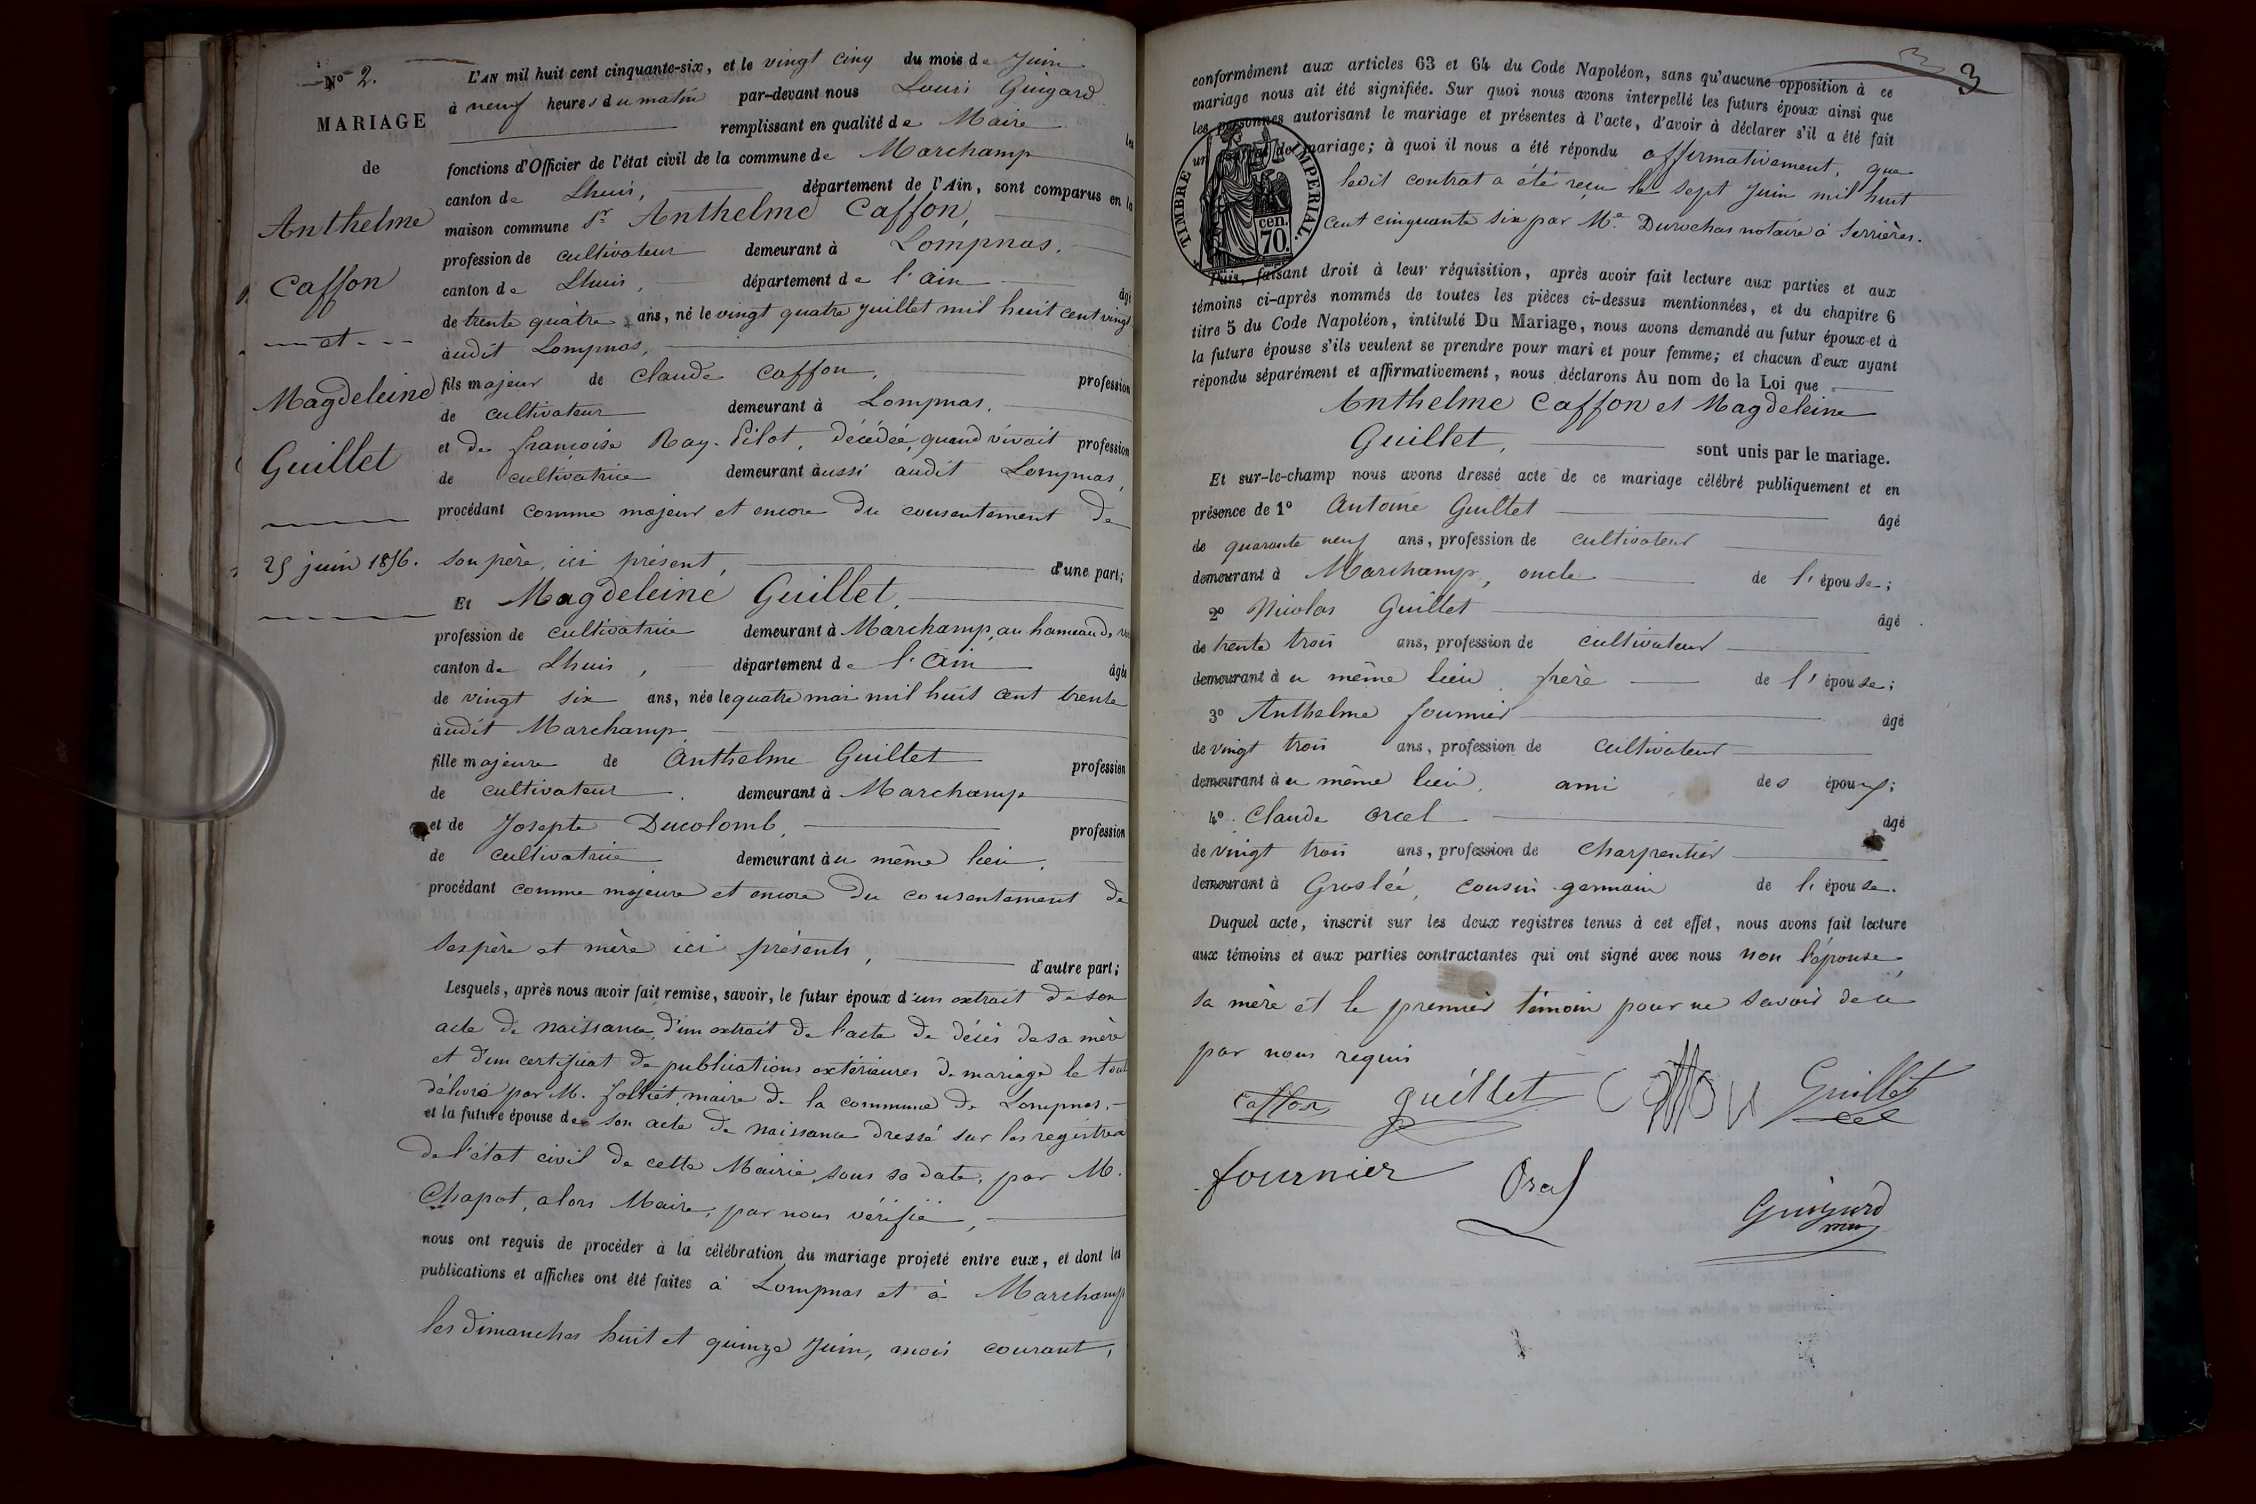 N° 2.
MARIAGE
de
Anthelme
Caffon
et
Magdeleine
Guillet
25 juin 1856.
L'AN mil huit cent cinquante-six, et le vingt cinq du mois de Juin
à neuf heures du matin par-devant nous Louis Guigard
remplissant en qualité de Maire les
fonctions d'Officier de l'état civil de la commune de Marchamp
canton de Lhuis, département de l'Ain, sont comparus en la
maison commune Sr Anthelme Caffon,
profession de cultivateur demeurant à Lompnas.
canton de Lhuis, département de l'Ain âgé
de trente quatre ans, né le vingt quatre Juillet mil huit cent vingt
audit Lompnas,
fils majeur de Claude Caffon, profession
de cultivateur demeurant à Lompnas.
et de françoise Ray-Pilot, décédée, quand vivait profession
de cultivatrice demeurant aussi audit Lompnas,
procédant comme majeur et encore du consentement de
son père, ici présent, d'une part;
Et Magdeleine Guillet,
profession de cultivatrice demeurant à Marchamp, au hameau de
canton de Lhuis, département de l'Ain âgée
de vingt six ans, née le quatre mai mil huit cent trente
audit Marchamp,
fille majeure de Anthelme Guillet profession
de cultivateur demeurant à Marchamp
et de Josepte Ducolomb, profession
de cultivatrice demeurant au même lieu,
procédant comme majeure et encore du consentement de
ses père et mère ici présents, d'autre part;
Lesquels, après nous avoir fait remise, savoir, le futur époux d'un extrait de son
acte de naissance, d'un extrait de l'acte de décès de sa mère
et d'un certificat de publications extérieures de mariage le tout
délivré par M. Jolliet, maire de la commune de Lompnas,
et la future épouse de son acte de naissance dressé sur les registres
de l'état civil de cette Mairie, sous sa date, par M.
Chapot, alors Maire, par nous vérifié,
nous ont requis de procéder à la célébration du mariage projeté entre eux, et dont les
publications et affiches ont été faites à Lompnas et à Marchamp
les dimanches huit et quinze Juin, mois courant,
3
conformément aux articles 63 et 64 du Code Napoléon, sans qu'aucune opposition à ce
mariage nous ait été signifiée. Sur quoi nous avons interpellé les futurs époux ainsi que
les personnes autorisant le mariage et présentes à l'acte, d'avoir à déclarer s'il a été fait
un de mariage; à quoi il nous a été répondu affirmativement, que
ledit contrat a été reçu le sept Juin mil huit
cent cinquante six par Me. Durochas notaire à Serrières.
TIMBRE IMPERIAL.
cen.
70.
Puis, faisant droit à leur réquisition, après avoir fait lecture aux parties et aux
témoins ci-après nommés de toutes les pièces ci-dessus mentionnées, et du chapitre 6
titre 5 du Code Napoléon, intitulé Du Mariage, nous avons demandé au futur époux et à
la future épouse s'ils veulent se prendre pour mari et pour femme; et chacun d'eux ayant
répondu séparément et affirmativement, nous déclarons Au nom de la Loi que
Anthelme Caffon et Magdeleine
Guillet, sont unis par le mariage.
Et sur-le-champ nous avons dressé acte de ce mariage célébré publiquement et en
présence de 1° Antoine Guillet âgé
de quarante neuf ans, profession de cultivateur
demeurant à Marchamp, oncle de l'épouse;
2° Nicolas Guillet âgé
de trente trois ans, profession de cultivateur
demeurant au même lieu frère de l'épouse;
3° Anthelme fournier âgé
de vingt trois ans, profession de cultivateur
demeurant au même lieu, ami des époux;
4° Claude Orcel âgé
de vingt trois ans, profession de charpentier
demeurant à Groslée, cousin germain de l'épouse.
Duquel acte, inscrit sur les deux registres tenus à cet effet, nous avons fait lecture
aux témoins et aux parties contractantes qui ont signé avec nous non l'épouse,
sa mère et le premier témoin pour ne savoir de ce
par nous requis
Caffon guillet Caffon Guillet
fournier Orcel Guigard